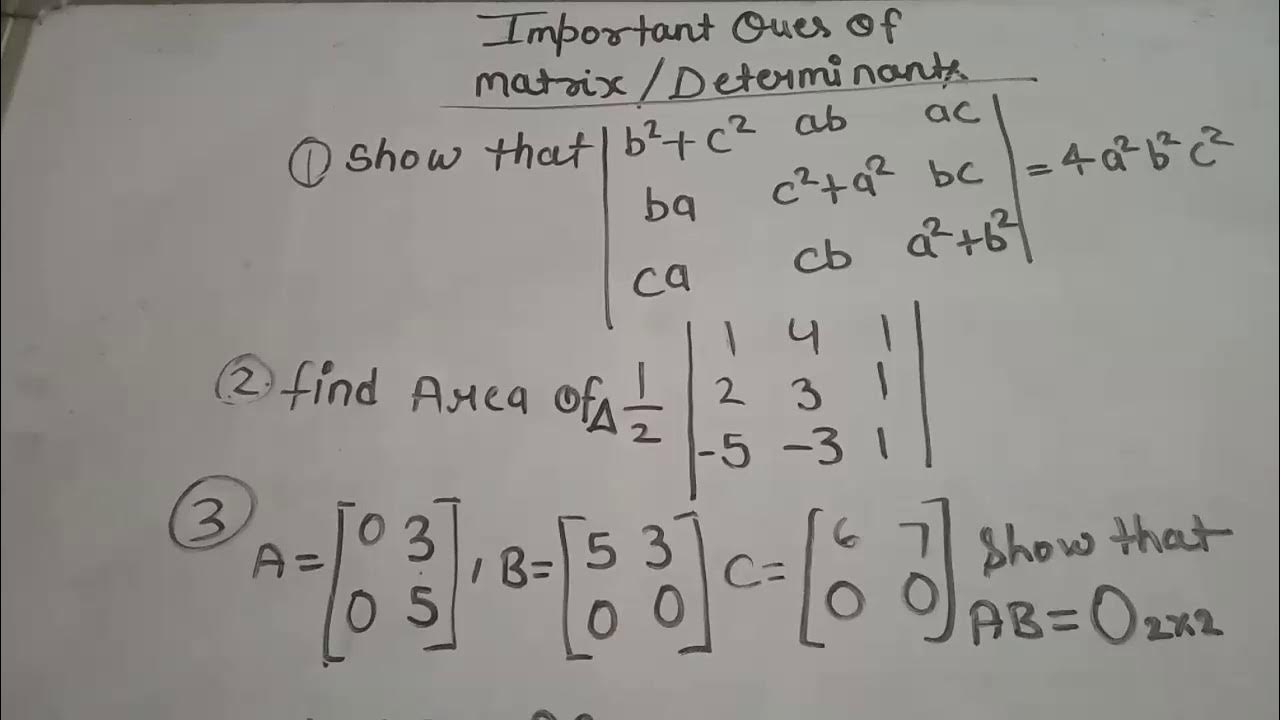 Important Ques Of
matrix/Determinants
① Show that | b²+c² ab ac |
| ba c²+a² bc | = 4a²b²c²
| ca cb a²+b² |
② find Area of Δ 1/2 | 1 4 1 |
| 2 3 1 |
| -5 -3 1 |
③ A = [0 3], B = [5 3] C = [6 7] Show that
[0 5] [0 0] [0 0] AB = O₂ₓ₂